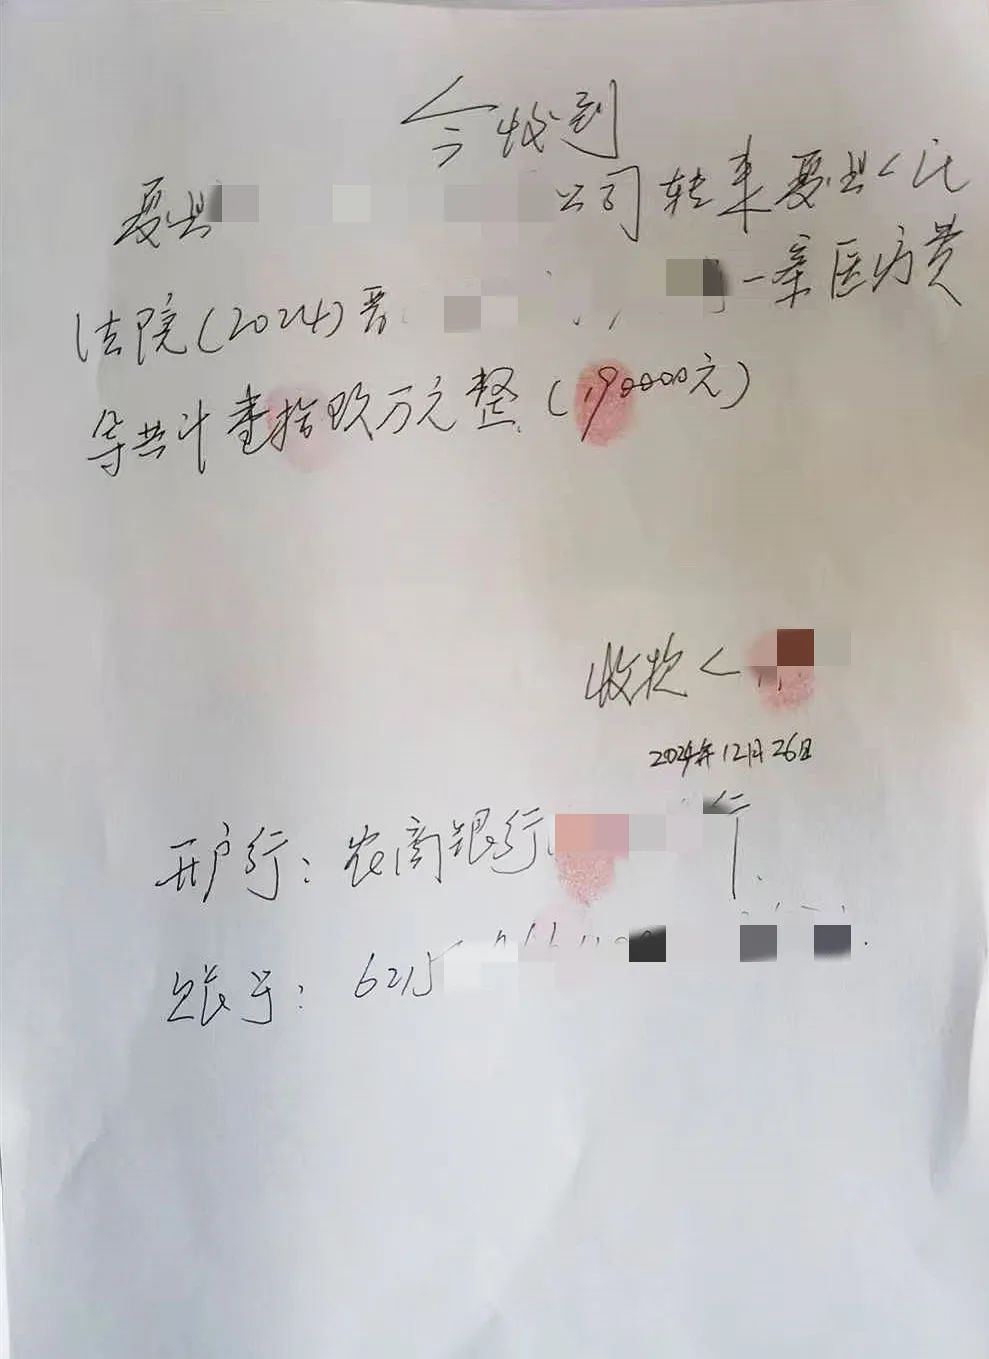 今收到
夏县 公司转来夏县人民
法院(2024)晋 一案医疗费
等共计壹拾玖万元整(190000元)
收款人
2024年12月26日
开户行:农商银行 行
账号:6215